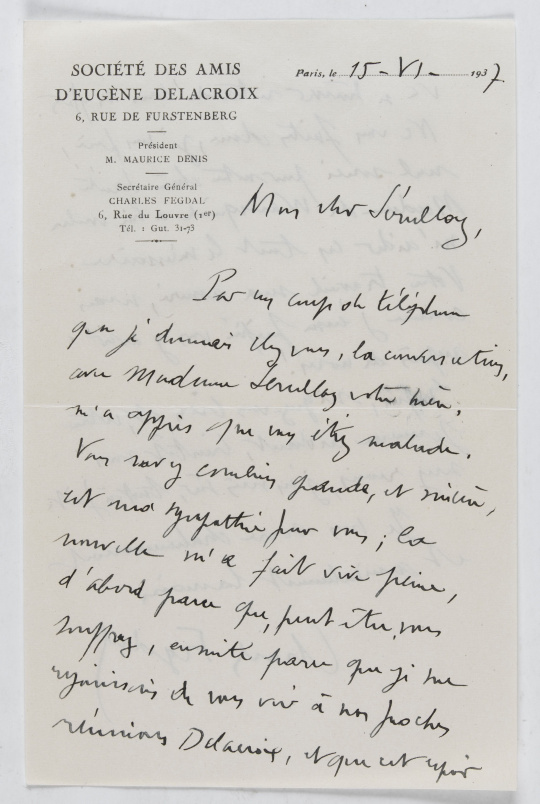 SOCIÉTÉ DES AMIS
D'EUGÈNE DELACROIX
6, RUE DE FURSTENBERG
Président
M. MAURICE DENIS
Secrétaire Général
CHARLES FEGDAL
6, Rue du Louvre (1er)
Tél. : Gut. 31-73
Paris, le 15-VI- 1937
Mon cher Sérullaz,
Par un coup de téléphone
que je donnais chez vous, la conversation,
avec Madame Sérullaz votre mère,
m'a appris que vous étiez malade.
Vous savez combien grande, et sincère,
est ma sympathie pour vous ; la
nouvelle m'a fait vive peine,
d'abord parce que, peut-être, vous
souffrez, ensuite parce que je me
réjouissais de vous voir à nos proches
réunions Delacroix, et que cet espoir